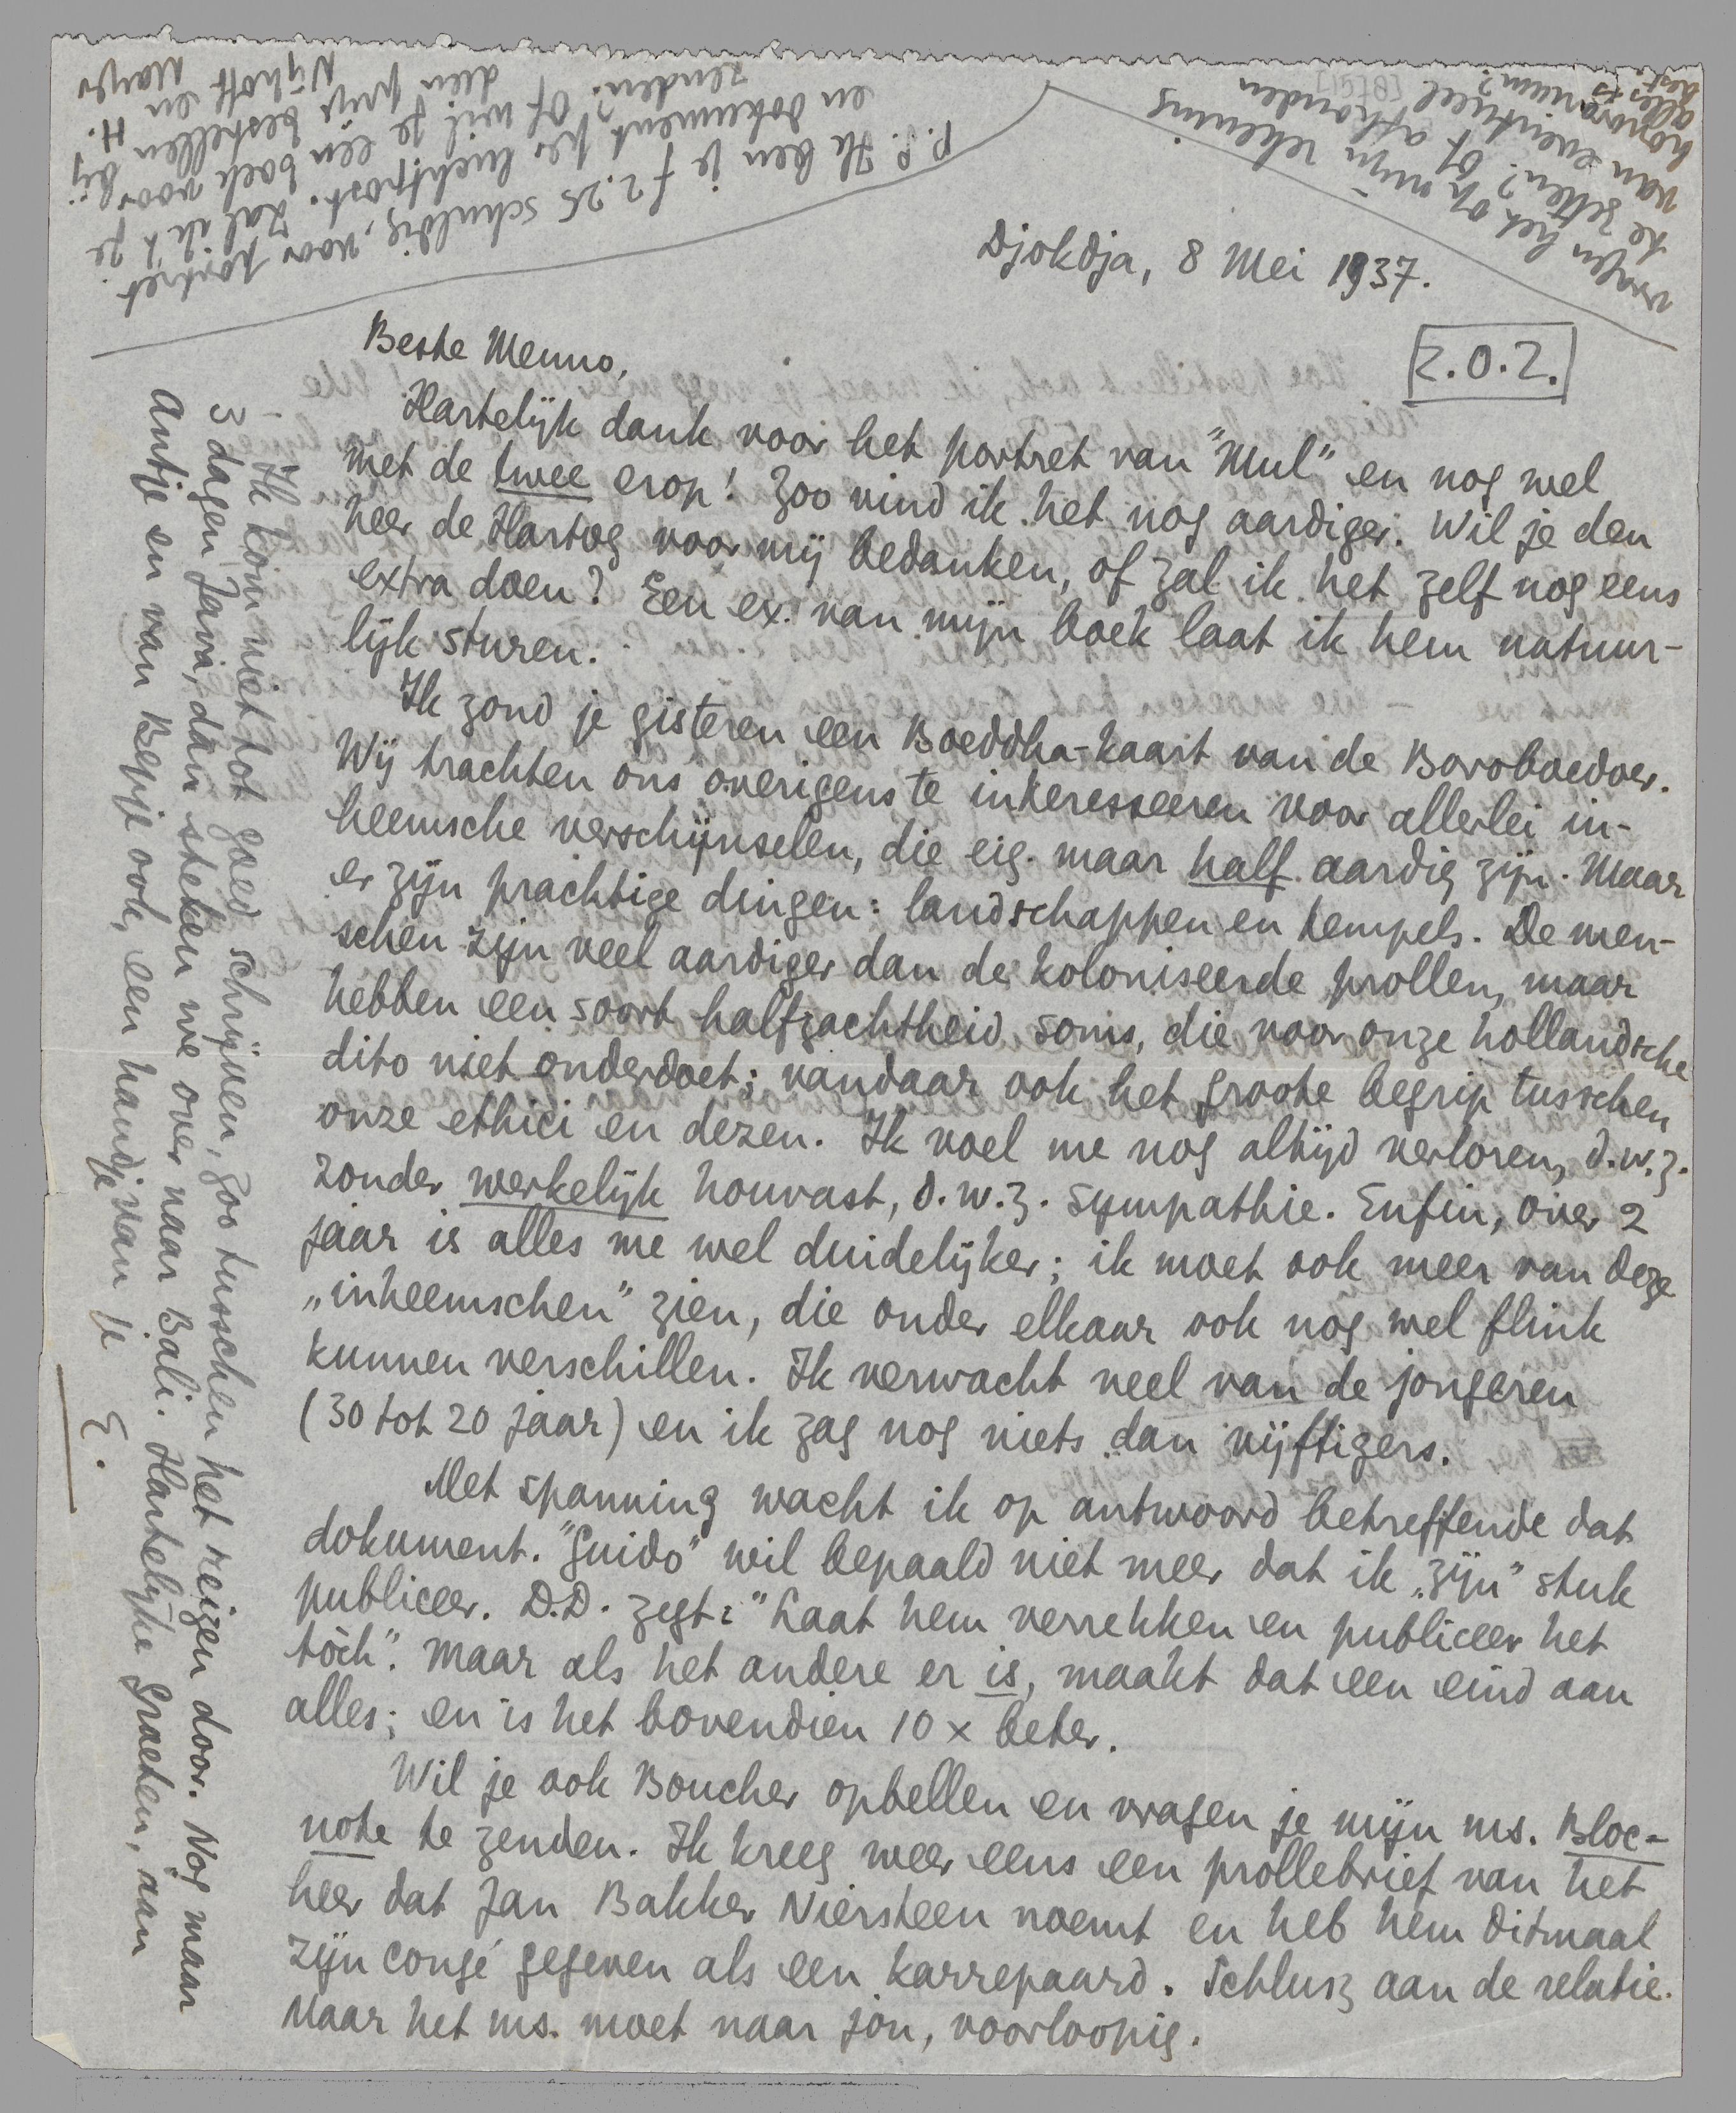 Djokdja, 8 Mei 1937.
Z.O.Z.
Beste Menno,
Hartelijk dank voor het portret van "Mul" en nog wel
met de twee erop! Zoo vind ik het nog aardiger. Wil je den
heer de Hartog voor mij bedanken, of zal ik het zelf nog eens
extra doen? Een ex. van mijn boek laat ik hem natuur-
lijk sturen.
Ik zond je gisteren een Boeddha-kaart van de Boroboedoer.
Wij trachten ons overigens te interesseeren voor allerlei in-
heemsche verschijnselen, die eig. maar half aardig zijn. Maar
er zijn prachtige dingen: landschappen en tempels. De men-
schen zijn veel aardiger dan de koloniseerde prollen, maar
hebben een soort halfzachtheid soms, die voor onze hollandsche
dito niet onderdoet; vandaar ook het groote begrip tusschen
onze ethici en dezen. Ik voel me nog altijd verloren, d.w.z.
zonder werkelijk houvast, d.w.z. sympathie. Enfin, over 2
jaar is alles me wel duidelijker; ik moet ook meer van deze
„inheemschen" zien, die onder elkaar ook nog wel flink
kunnen verschillen. Ik verwacht veel van de jongeren
(30 tot 20 jaar) en ik zag nog niets dan vijftigers.
Met spanning wacht ik op antwoord betreffende dat
dokument. "Guido" wil bepaald niet meer dat ik „zijn" stuk
publiceer. D.D. zegt: "Laat hem verrekken en publiceer het
tòch". Maar als het andere er is, maakt dat een eind aan
alles; en is het bovendien 10 x beter.
Wil je ook Boucher opbellen en vragen je mijn ms. Bloc-
note te zenden. Ik kreeg weer eens een prollebrief van het
heer dat Jan Bakker Niersteen noemt en heb hem ditmaal
zijn congé gegeven als een karrepaard. Schlusz aan de relatie.
Maar het ms. moet naar jou, voorloopig.
- Ik kom niet tot goed schrijven, zoo tusschen het reizen door. Nog maar
3 dagen Java, dan steken we over naar Bali. Hartelijke groeten, aan
Antje en van Bepje ook, een handje van je
E.
P.S. Ik ben je f 2.25 schuldig, voor portret
en dokument per luchtpost. Zal ik 't je
zenden? Of wil je een boek voor
dien prijs bestellen bij
Nijhoff en
vragen het op mijn rekening
te zetten? Of afhouden
van eventueel
honorarium?
alles is
best.